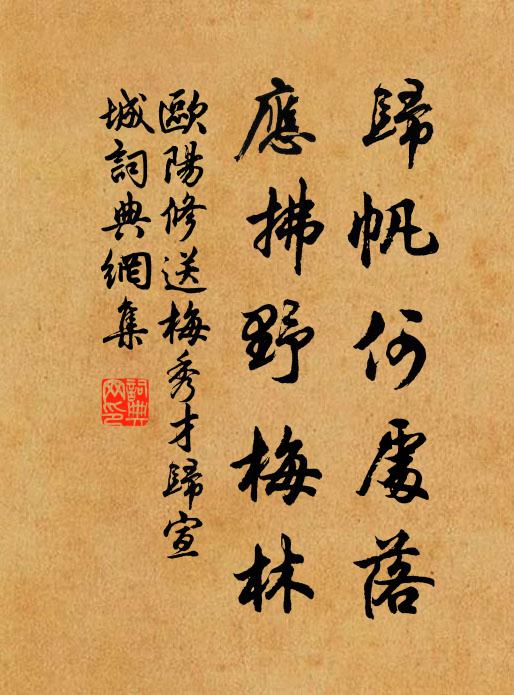 歸帆何處落
應拂野梅林
歐陽修送梅秀才歸宣
城詞典網集
詞典
网印